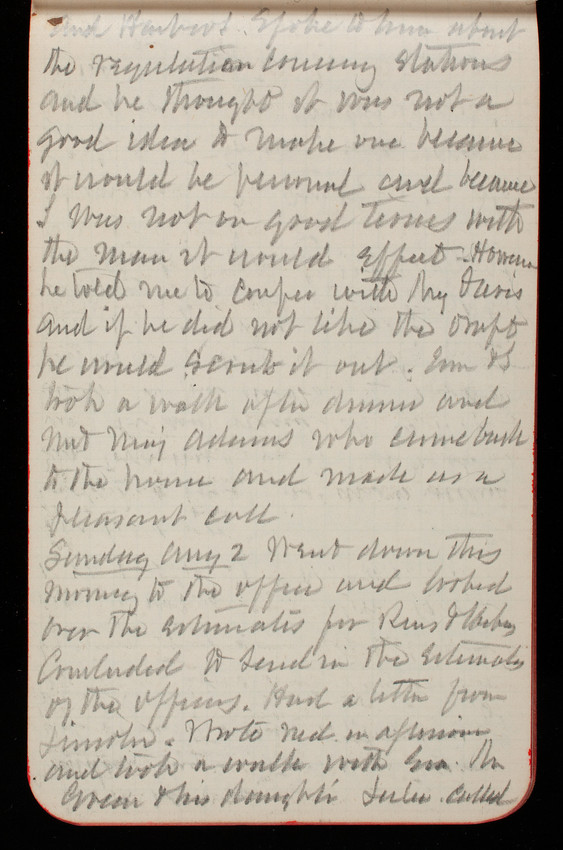 and Harbors. Spoke to him about
the regulation concerning Stations
and he thought it was not a
good idea to make one because
it would be personal and because
I was not on good terms with
the man it would effect. However
he told me to confer with Maj Davis
and if he did not like the draft
he would scrub it out. Em & I
took a walk after dinner and
met Maj Adams who came back
to the house and made us a
pleasant call.
Sunday Aug 2 Went down this
morning to the office and looked
over the estimates for Rivs &
Concluded to send in the estimates
of the officers. Had a letter from
Lincoln. Wrote Ned in afternoon
and took a walk with Em. Mr
Green & his daughter called